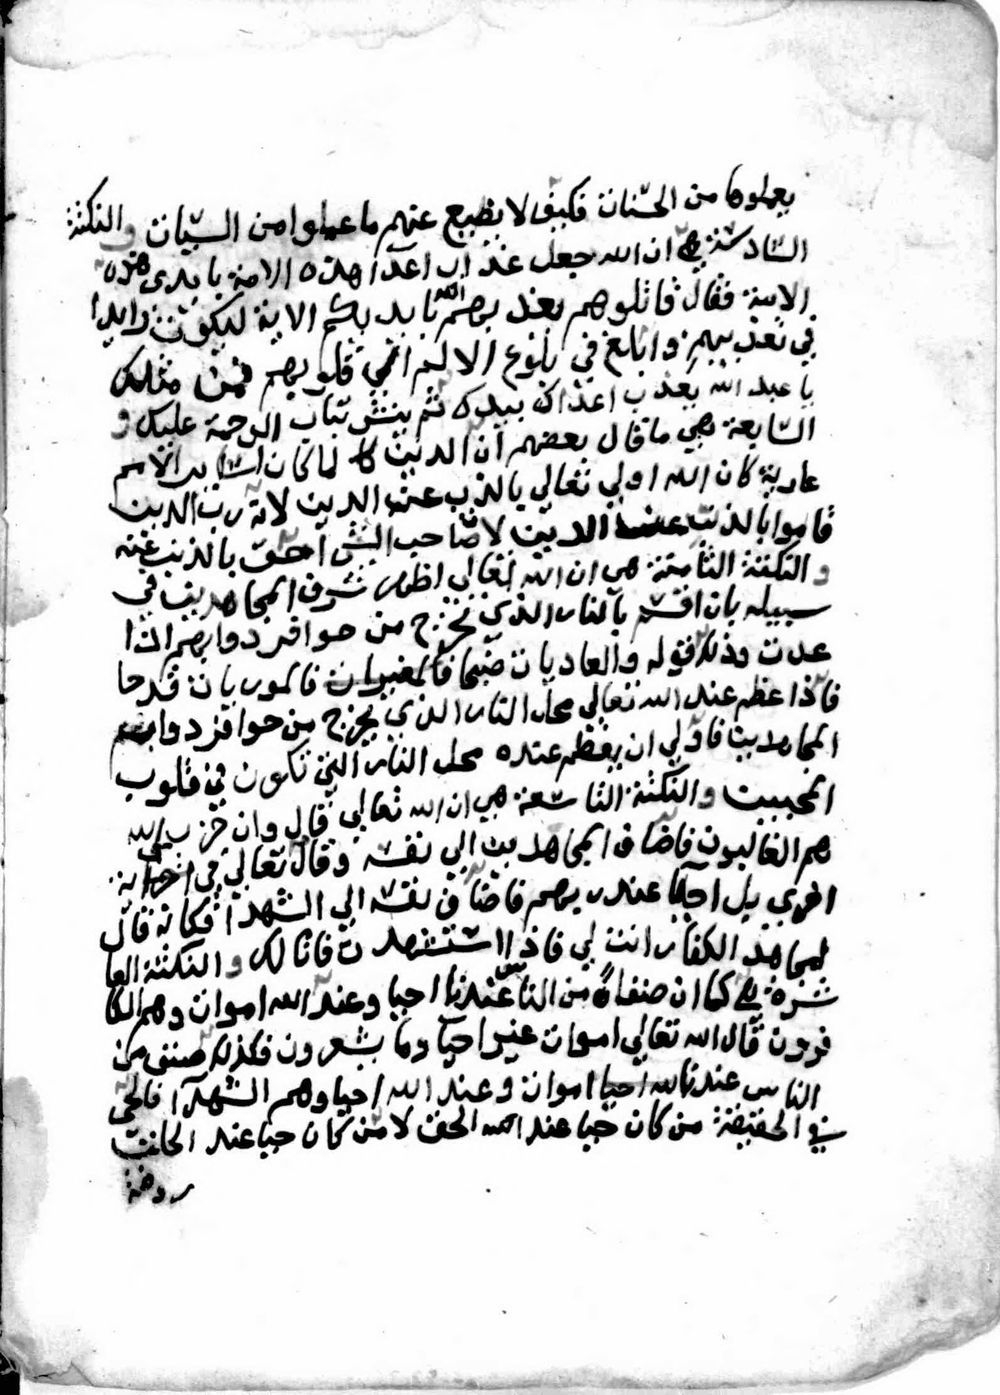 يعملوها من الحسنات فكيف لا يضيع عنهم ما عملوا من السيّات والنكتة
السّادسة هي ان الله جعل عذاب اعدآ هذه الامة بايدى هذه
الامة فقال قاتلوهم يعذبهم الله بايديكم الاية ليكون زايدا
في تعذيبهم وابلغ في بلوغ الالم الي قلوبهم فمن مثلك
يا عبد الله يعذب اعداك بيدك ثم ينشر ثياب الرحمة عليك و
السّابعة هي ما قال بعضهم ان الدين لما كان
عارية كان الله اولي تعالي بالذب عن الدين لانه ربّ الدين
قاموا بالذبّ عن الدين لا صاحب الشي احقّ بالذب عنه
والنكتة الثامنة هي ان الله تعالي اظهر شرف المجاهدين في
سبيله بان اقسم بالنار الذي تخرج من حوافر دوابهم اذا
عدت وذلك قوله والعاديات ضبحا فالمغيرات فالموريات قدحا
فاذا عظم عند الله تعالي محل النار الذي يخرج من حوافر دوابهم
المجاهدين فاولي ان يعظم عنده محل النار التي تكون في قلوب
المحبين والنكتة التاسعة هي ان الله تعالي قال وان حزب الله
هم الغالبون فاضاف المجاهدين الي نفسه وقال تعالي في اية
اخري بل احيآ عند ربهم فاضاف نفسه الي الشهدآ فكانه قال
لمجاهد الكفار انت لي فاذا استشهدت فانا لك والنكتة العا
شرة هي كما ان صنفا من الناس عندنا احيا وعند الله اموات وهم الكا
فرون قال الله تعالي اموات غير احيا وما يشعرون فكذلك صنف من
الناس عندنا الله احيا اموات وعند الله احيا وهم الشهدآ فالحي
في الحقيقة من كان حيا عند الله الحق لا من كان حيا عند الخلق